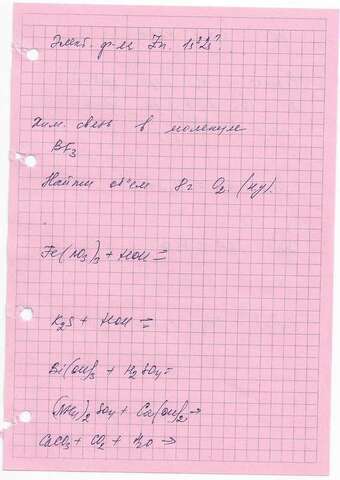 Элект. ф-ла Zn. 1s²2s²
Хим. связь в молекуле
BF₃
Найти объём 8г O₂ (ну).
Fe(NO₃)₃ + HOH =
K₂S + HOH =
Bi(OH)₃ + H₂SO₄=
(NH₄)₂SO₄ + Ca(OH)₂→
CaCO₃ + CO₂ + H₂O →